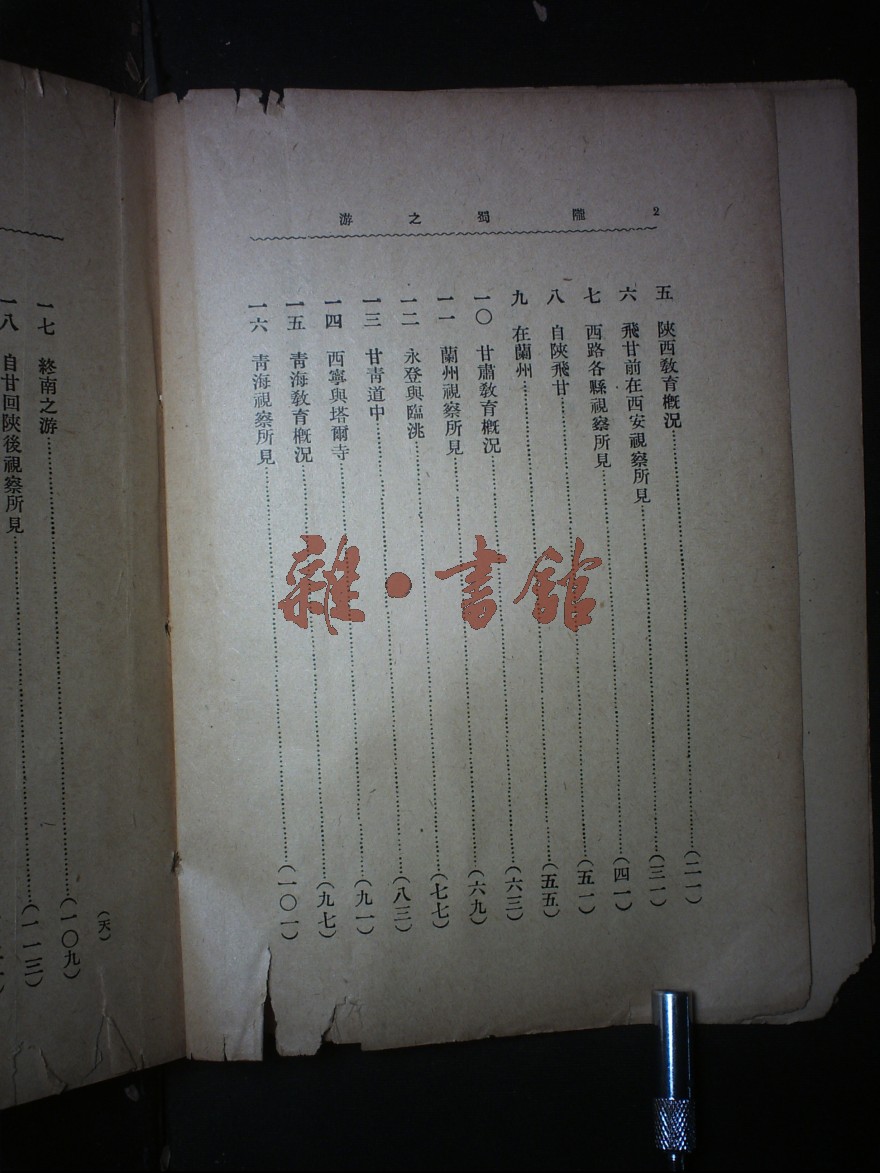 2 隴蜀之游
五 陝西敎育概況……(二一)
六 飛甘前在西安視察所見……(三一)
七 西路各縣視察所見……(四一)
八 自陝飛甘……(五一)
九 在蘭州……(五五)
一〇 甘肅敎育概況……(六三)
一一 蘭州視察所見……(六九)
一二 永登與臨洮……(七七)
一三 甘靑道中……(八三)
一四 西寧與塔爾寺……(九一)
一五 靑海敎育概況……(九七)
一六 靑海視察所見……(一〇一)
(天)
一七 終南之游……(一〇九)
一八 自甘回陝後視察所見……(一一三)
雜·書館